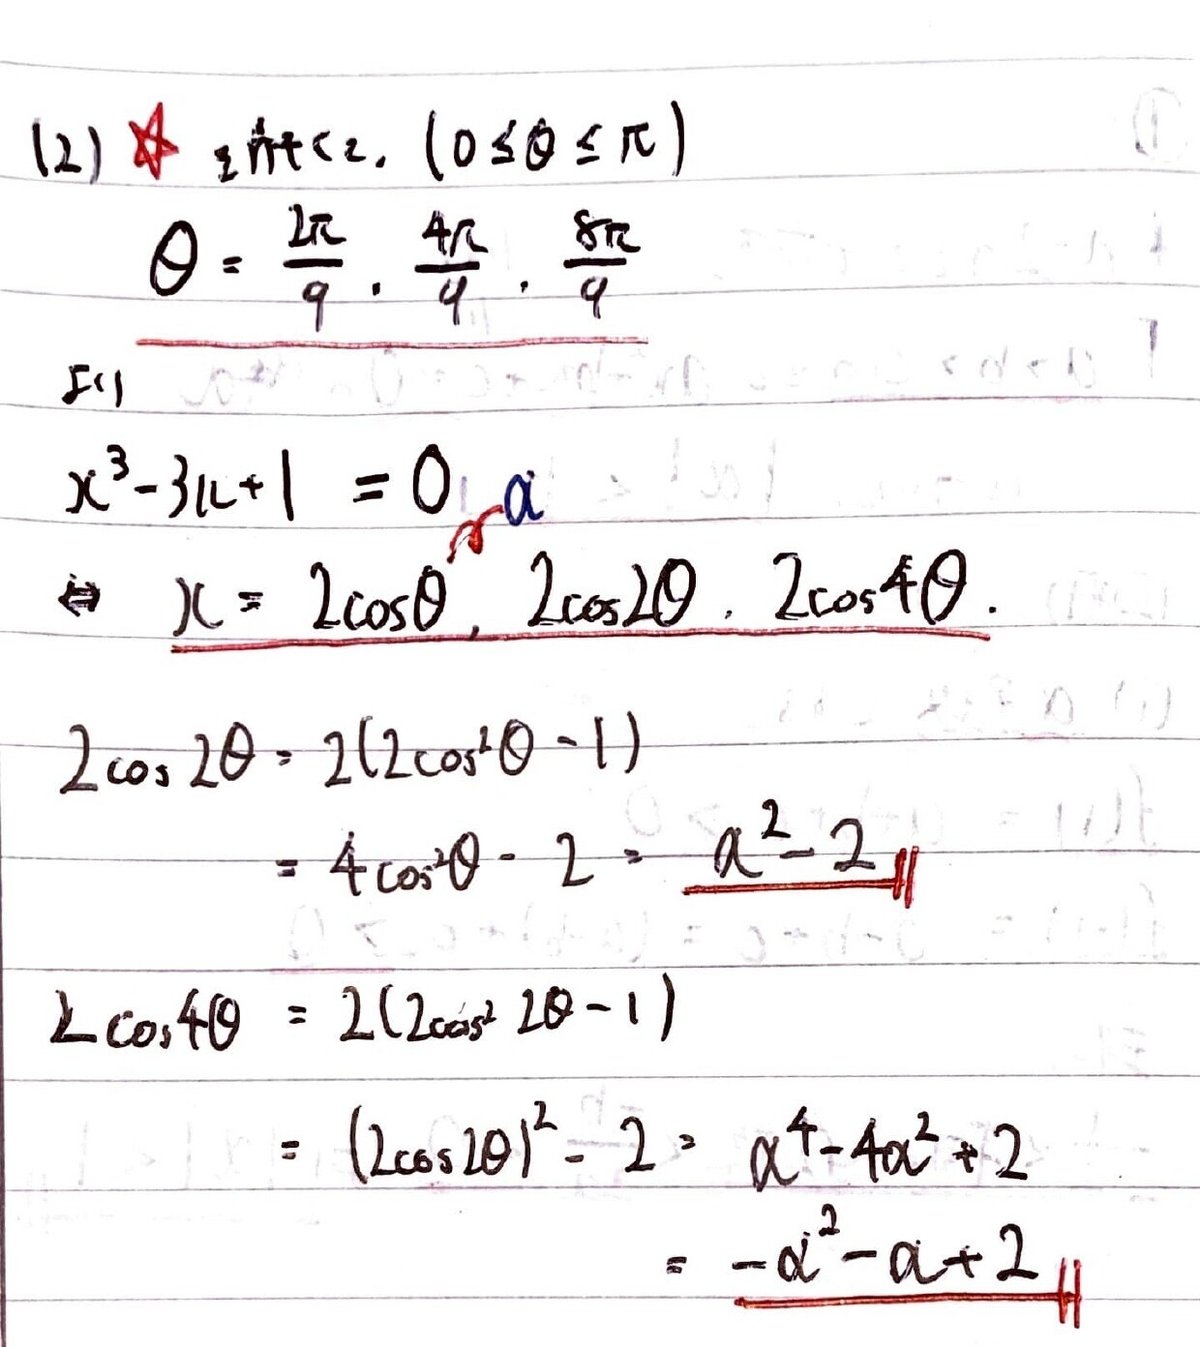 (2) ☆ を解くと. (0≤θ≤π)
θ = 2π/9 . 4π/9 . 8π/9
よって
x³-3x+1 = 0 α
⇔ x = 2cosθ, 2cos2θ. 2cos4θ.
2cos2θ = 2(2cos²θ-1)
= 4cos²θ - 2 = α²-2
2cos4θ = 2(2cos²2θ-1)
= (2cos2θ)²-2 = α⁴-4α²+2
= -α²-α+2